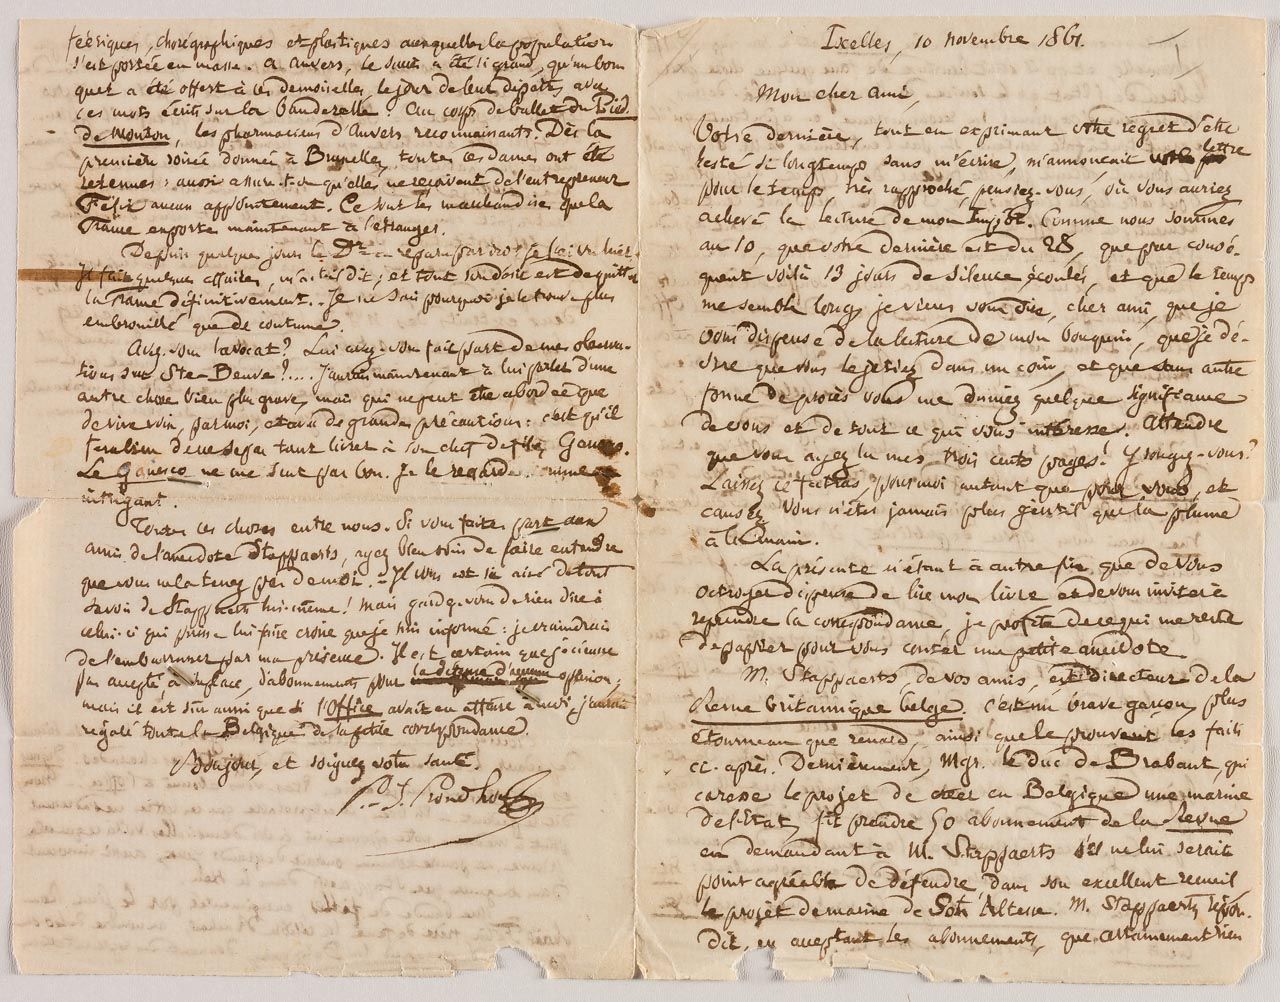 Ixelles, 10 novembre 1861.
I
Mon cher ami,
Votre dernière, tout en exprimant votre regret d'être
resté si longtemps sans m'écrire, m'annonçait lettre
pour le temps, très rapproché, pensiez-vous, où vous auriez
achevé la lecture de mon Impôt. Comme nous sommes
au 10, que votre dernière est du 28, que par consé-
quent voilà 13 jours de silence écoulés, et que le temps
me semble long, je viens vous dire, cher ami, que je
vous dispense de la lecture de mon bouquin, que je dé-
sire que vous le jetiez dans un coin, et que sans autre
forme de procès vous me donniez quelque signe
de vous et de tout ce qui vous intéresse. Attendre
que vous ayez lu mes trois cents pages! Y songez-vous?
Laissez ce fatras, pour moi autant que pour vous, et
causez. Vous n'êtes jamais plus gentil que la plume
à la main.
La présente n'étant à autre fin que de vous
octroyer dispense de lire mon livre et de vous inviter à
reprendre la correspondance, je profite de ce qui me reste
de papier pour vous conter une petite anecdote.
M. Stappaerts, de vos amis, est directeur de la
Revue britannique belge. C'est un brave garçon, plus
étourneau que renard, ainsi que le prouvent les faits
ci-après. Dernièrement, Mgr. le duc de Brabant, qui
caresse le projet de créer en Belgique une marine
de l'État, fit prendre 50 abonnements de la Revue
en demandant à M. Stappaerts s'il ne lui serait
point agréable de défendre, dans son excellent recueil,
le projet de marine de Son Altesse. M. Stappaerts répon-
dit, en acceptant les abonnements, que certainement rien
féériques, chorégraphiques et plastiques auxquelles la population
s'est portée en masse. A Anvers, le succès a été si grand, qu'un bou-
quet a été offert à ces demoiselles, le jour de leur départ, avec
ces mots écrits sur la banderelle: Au corps de ballet du Pied
de Mouton, les pharmaciens d'Anvers reconnaissants. Dès la
première soirée donnée à Bruxelles, toutes ces dames ont été
retenues: aussi assure-t-on qu'elles ne reçoivent de l'entrepreneur
aucun appointement. Ce sont les marchandises que la
France exporte maintenant à l'étranger.
Depuis quelque jours le Dr. a reparu par ici: je l'ai vu hier.
Il fait quelques affaires, m'a-t-il dit, et tout son désir est de quitter
la France définitivement. - Je ne sais pourquoi je le trouve plus
embrouillé que de coutume.
Avez-vous l'avocat? Lui avez-vous fait part de mes observa-
tions sur Ste-Beuve?.... J'aurais maintenant à lui parler d'une
autre chose bien plus grave, mais qui ne peut être abordée que
de vive voix, par moi, et avec de grandes précautions: c'est qu'il
ferait bien de ne se pas tant livrer à son chef de file,
Le ne me sent pas bon. Je le regarde comme
intrigant.
Toutes ces choses entre nous. Si vous faites part aux
amis de l'anecdote Stappaerts, ayez bien soin de faire entendre
que vous ne la tenez pas de moi. - Il vous est si aisé de tout
savoir de Stappaerts lui-même! Mais gardez-vous de rien dire à
celui-ci qui puisse lui faire croire que je suis informé: je craindrais
de l'embarrasser par ma présence. Il est certain que je n'eusse
pas accepté, à sa place, d'abonnements pour opinion;
mais il est sûr aussi que si l'Office avait eu affaire à moi, j'aurais
régalé toute la Belgique de la petite correspondance.
Bonjour, et soignez votre santé.
P.-J. Proudhon